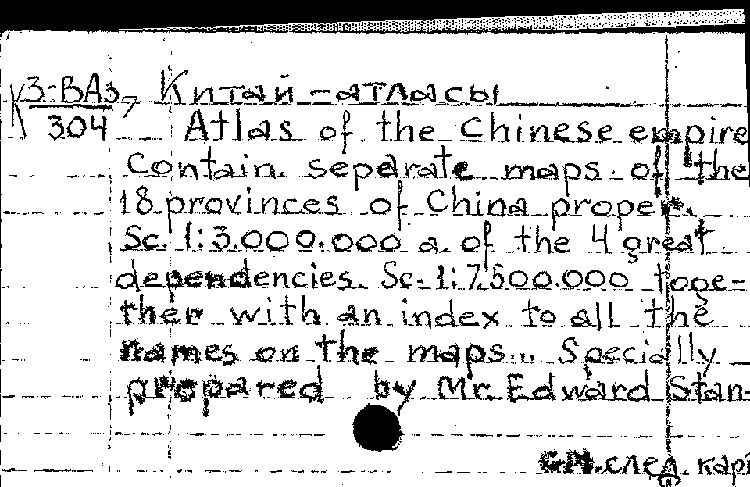 К 3-ВАз/304, Китай - атласы
Atlas of the Chinese empire
contain. separate maps of the
18 provinces of China proper.
Sc. 1:3.000.000 a. of the 4 great
dependencies. Sc. 1:7.500.000 toge-
ther with an index to all the
names on the maps... Specially
prepared by Mr. Edward Stan-
См. след. кар